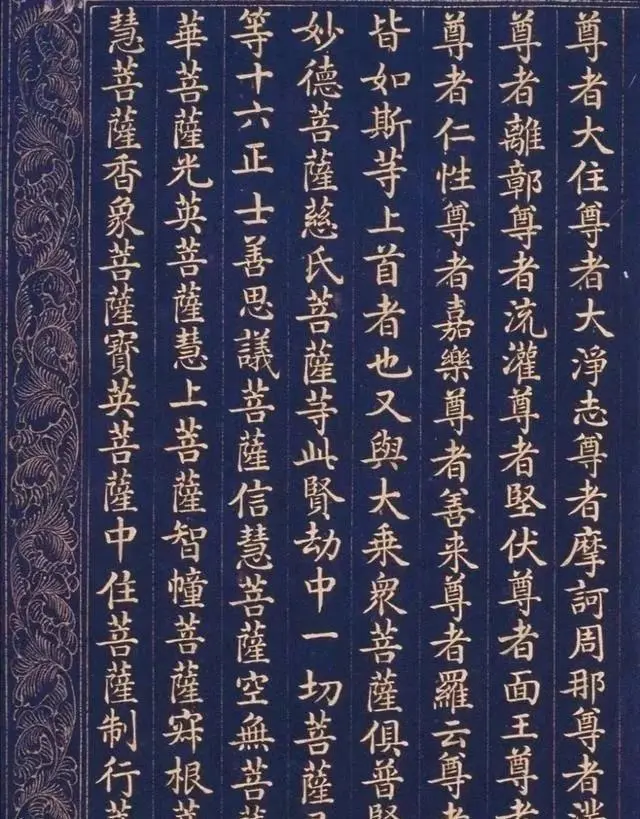 尊者大住尊者大淨志尊者摩訶周那尊者滿
尊者離鄣尊者流灌尊者堅伏尊者面王尊者
尊者仁性尊者嘉樂尊者善来尊者羅云尊者
皆如斯等上首者也又與大乘衆菩薩俱普賢
妙德菩薩慈氏菩薩等此賢劫中一切菩薩又
等十六正士善思議菩薩信慧菩薩空無菩薩
華菩薩光英菩薩慧上菩薩智幢菩薩寂根菩
慧菩薩香象菩薩寶英菩薩中住菩薩制行菩